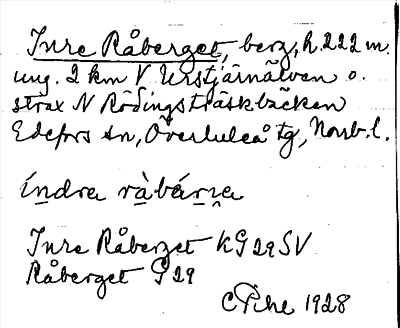 Inre Råberget, berg, h. 222 m.
ung. 2 km V Urstjärnälven o.
strax N Rödingsträskbäcken
Edefors sn, Överluleå tg, Norrb. l.
Inre Råberget KG 29 SV
Råberget G 29
1928